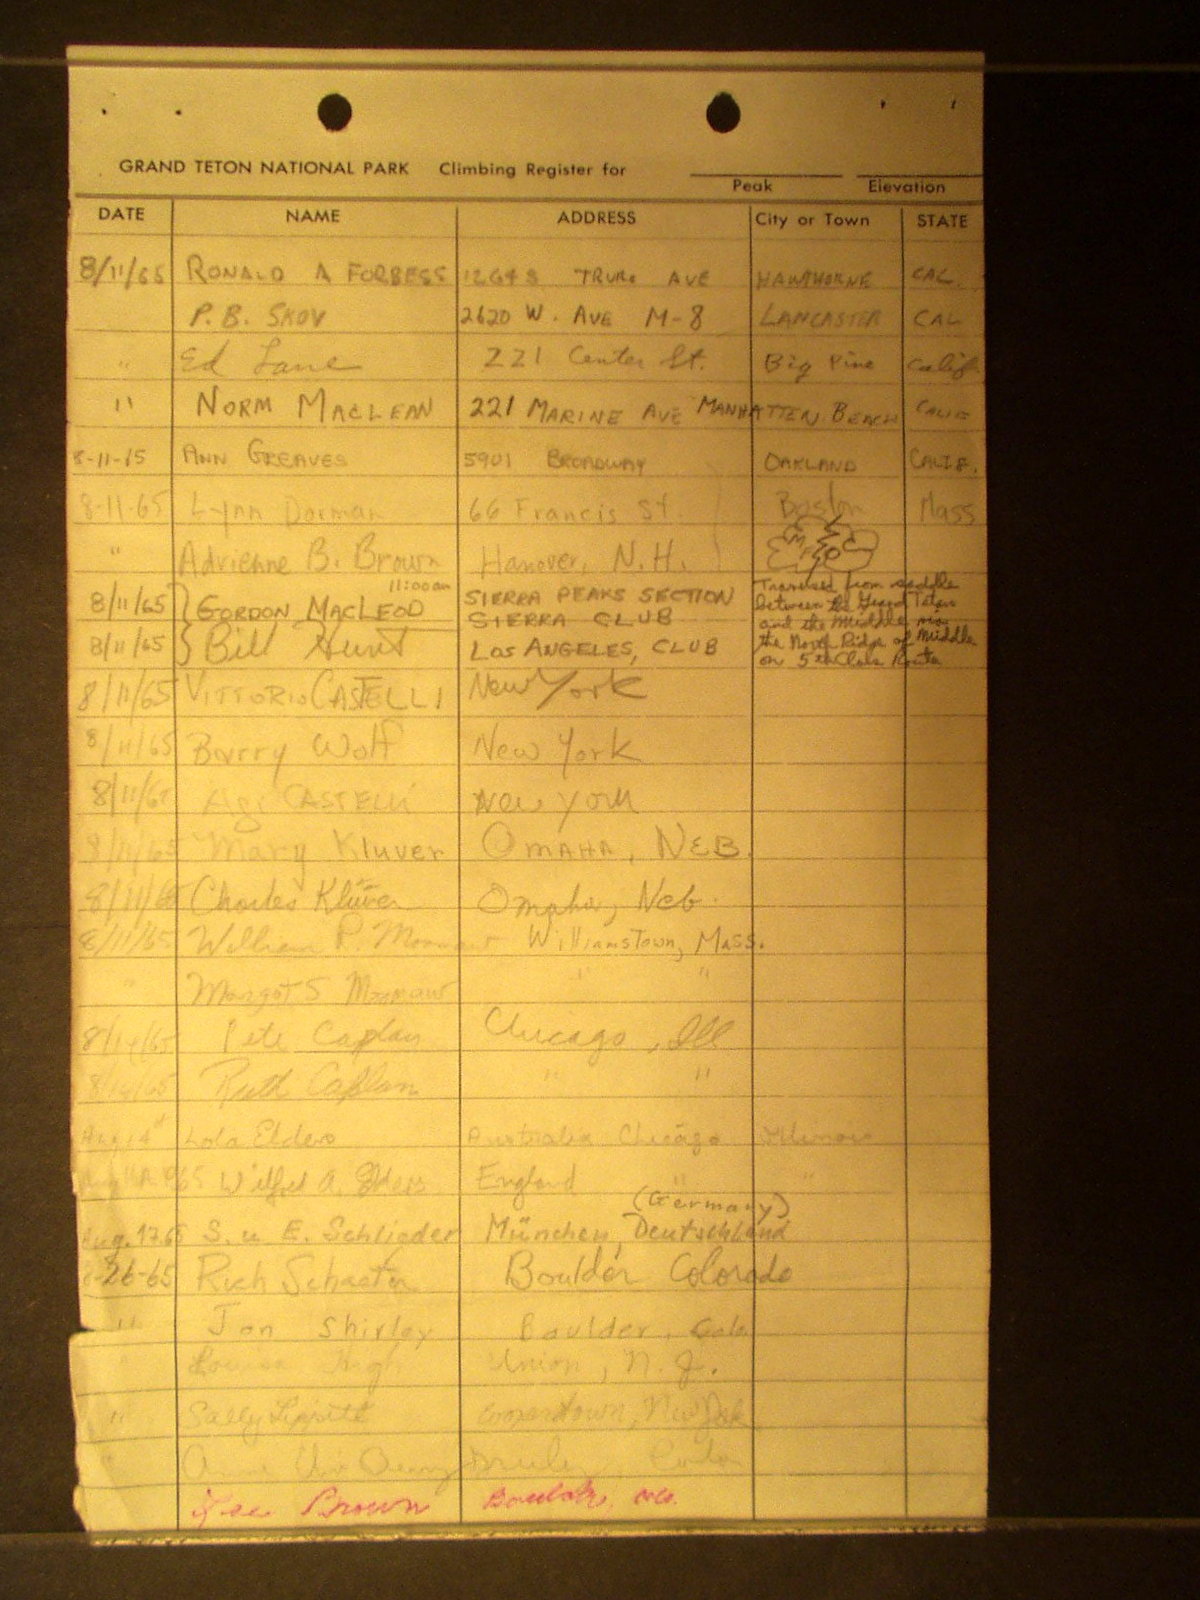 GRAND TETON NATIONAL PARK Climbing Register for
Peak Elevation
DATE NAME ADDRESS City or Town STATE
8/11/65 RONALD A FORBESS 12648 TRURO AVE HAWTHORNE CAL.
P. B. SKOV 2620 W. AVE M-8 LANCASTER CAL
" Ed Lane 221 Center St. Big Pine Calif.
" NORM MACLEAN 221 MARINE AVE MANHATTEN BEACH CALIF
8-11-65 ANN GREAVES 5901 BROADWAY OAKLAND CALIF.
8-11-65 Lynn Dorman 66 Francis St. Boston Mass
" Adrienne B. Brown Hanover, N.H.
11:00am
8/11/65 GORDON MACLEOD SIERRA PEAKS SECTION
SIERRA CLUB
8/11/65 Bill Hunt LOS ANGELES, CLUB
Traversed from saddle
between the Grand Teton
and the Middle via
the North Ridge of Middle
on 5th Class Route
8/11/65 VITTORIO CASTELLI New York
8/11/65 Barry Wolf New York
8/11/65 CASTELLI New York
8/11/65 Mary Kluver OMAHA, NEB.
8/11/65 Charles Kluver Omaha, Neb.
8/11/65 William P. Williamstown, Mass.
" Margot S " "
8/14/65 Pete Caplan Chicago, Ill
8/14/65 Ruth Caplan " "
Aug 14 Lola Elders Australia Chicago Illinois
65 Wilfred A. Elders England " "
(Germany)
Aug. 17.65 S. u. E. Schlieder München, Deutschland
8-26-65 Rich Schaefer Boulder Colorado
" Jan Shirley Boulder, Colo
" Louisa High Union, N.J.
" Sally Lippitt Cooperstown, New York
"
Brown Boulder, Colo.